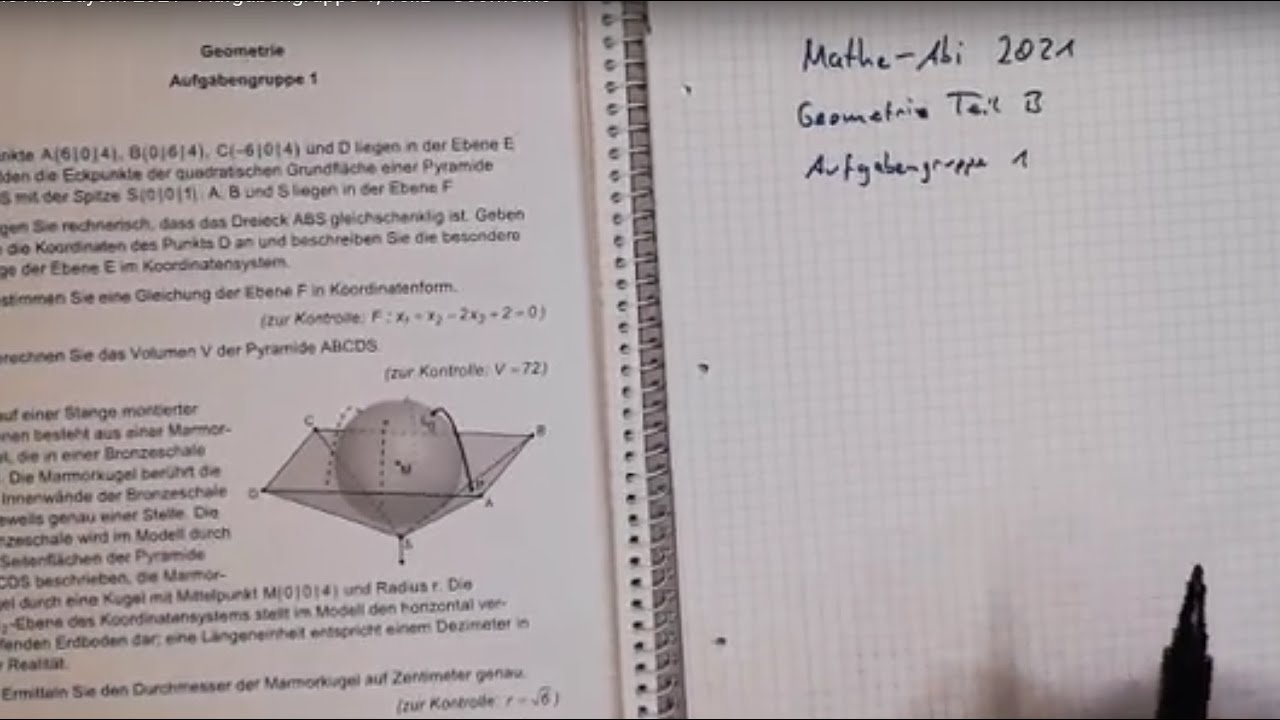 Geometrie
Aufgabengruppe 1
A(6|0|4), B(0|6|4), C(-6|0|4) und D liegen in der Ebene E
die Eckpunkte der quadratischen Grundfläche einer Pyramide
mit der Spitze S(0|0|1). A, B und S liegen in der Ebene F
Sie rechnerisch, dass das Dreieck ABS gleichschenklig ist. Geben
die Koordinaten des Punkts D an und beschreiben Sie die besondere
der Ebene E im Koordinatensystem.
Sie eine Gleichung der Ebene F in Koordinatenform.
(zur Kontrolle: F : x₁ + x₂ - 2x₃ + 2 = 0)
Sie das Volumen V der Pyramide ABCDS.
(zur Kontrolle: V = 72)
auf einer Stange montierter
besteht aus einer Marmor-
die in einer Bronzeschale
Die Marmorkugel berührt die
Innenwände der Bronzeschale
genau einer Stelle. Die
wird im Modell durch
Seitenflächen der Pyramide
beschrieben, die Marmor-
durch eine Kugel mit Mittelpunkt M(0|0|4) und Radius r. Die
-Ebene des Koordinatensystems stellt im Modell den horizontal ver-
Erdboden dar; eine Längeneinheit entspricht einem Dezimeter in
Realität.
Ermitteln Sie den Durchmesser der Marmorkugel auf Zentimeter genau.
(zur Kontrolle: r = √6)
C
B
M
D
P
A
S
Mathe-Abi 2021
Geometrie Teil B
Aufgabengruppe 1